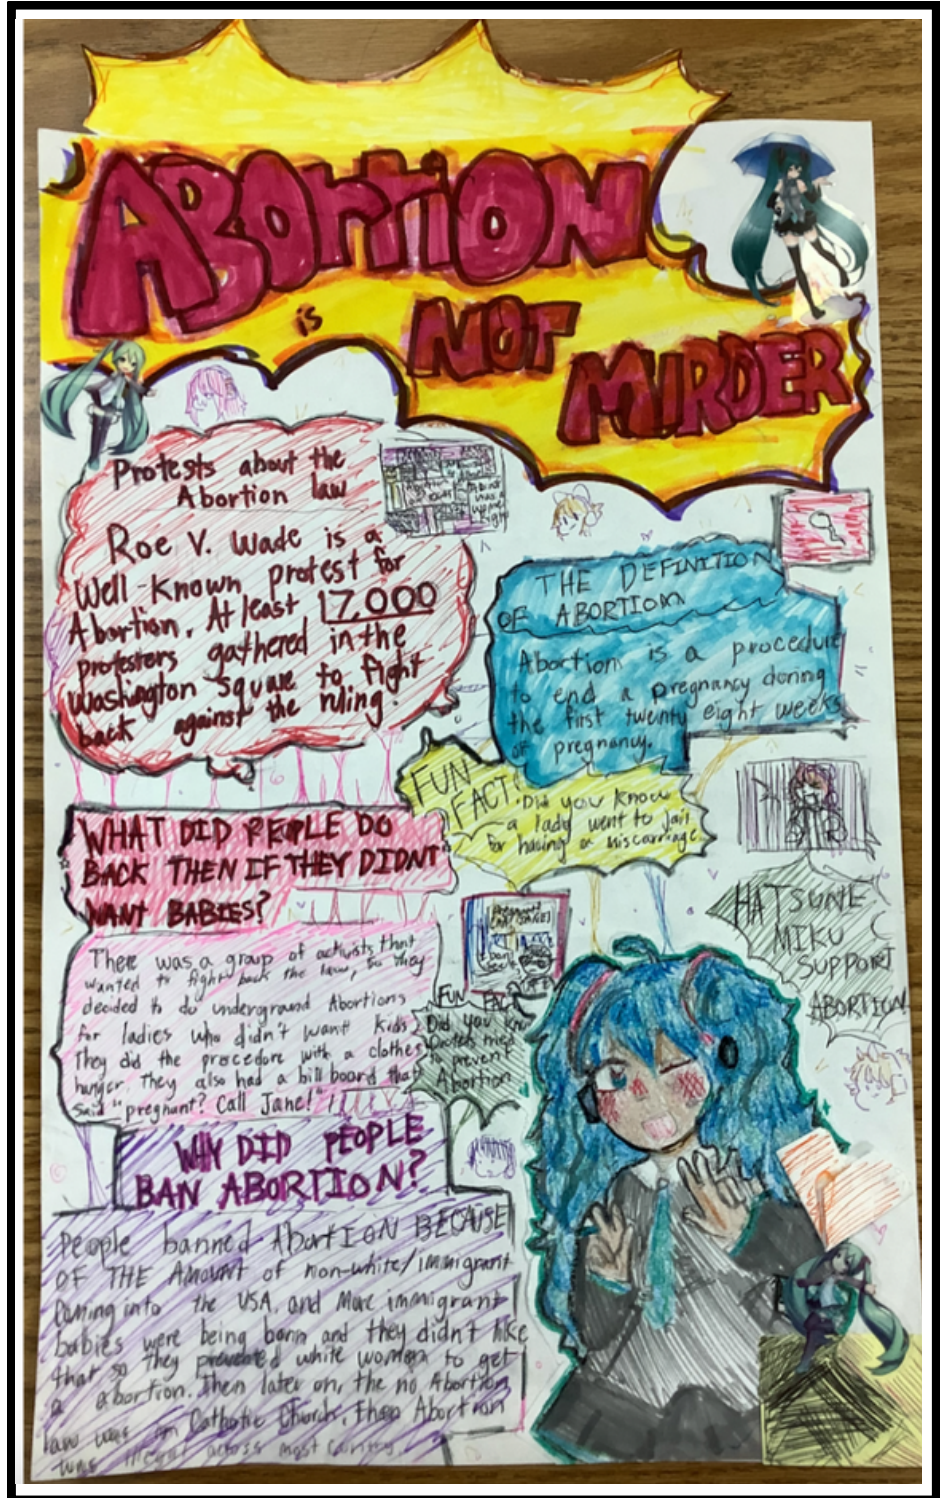 ABORTION
is
NOT
MURDER
Protests about the
Abortion law
Roe V. Wade is a
Well-Known protest for
Abortion. At least 17,000
protestors gathered in the
Washington Square to fight
back against the ruling.
THE DEFINITION
OF ABORTION
Abortion is a procedure
to end a pregnancy doring
the first twenty eight weeks
of pregnancy.
FUN
FACT!
Did you know
a lady went to jail
for having a miscarriage.
WHAT DID PEOPLE DO
BACK THEN IF THEY DIDNT
WANT BABIES?
There was a group of activists that
wanted to fight back the law, so they
decided to do underground Abortions
for ladies who didn't want kids.
They did the procedore with a clothes
hunger. They also had a bill board that
said "pregnant? Call Jane!"
FUN FACT
Did you know
Doctors tried
to prevent
Abortion
HATSUNE
MIKU
SUPPORT
ABORTION
WHY DID PEOPLE
BAN ABORTION?
People banned AbortION BECAUSE
OF THE AMOUNT of non-white/immigrant
Coming into the USA. and More immigrant
babies were being born and they didn't like
that so they prevented white women to get
a abortion. Then later on, the no Abortion
law was in Catholic Church, then Abortion
was illegal across most country.